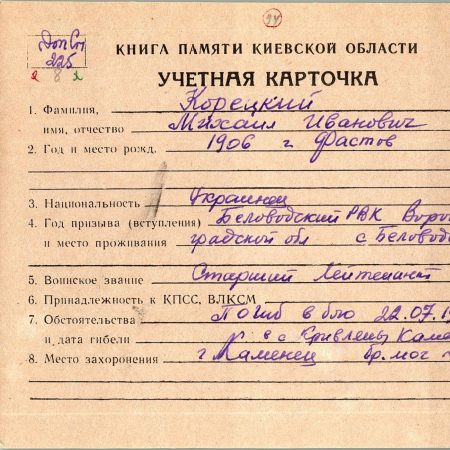 94
Доп Сп
225
2 8 2
КНИГА ПАМЯТИ КИЕВСКОЙ ОБЛАСТИ
УЧЕТНАЯ КАРТОЧКА
1. Фамилия, Корецкий
имя, отчество Михаил Иванович
2. Год и место рожд. 1906 г Фастов
3. Национальность Украинец
4. Год призыва (вступления) Беловодский РВК Вороши
и место проживания градской обл с Беловод
5. Воинское звание Старший Лейтенант
6. Принадлежность к КПСС, ВЛКСМ
7. Обстоятельства Погиб в бою 22.07.19
и дата гибели с Кривляны Каме
8. Место захоронения г Каменец бр. мог